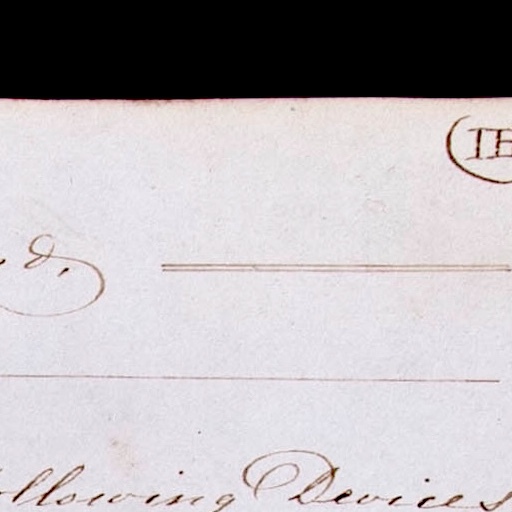 d.
ollowing Devices